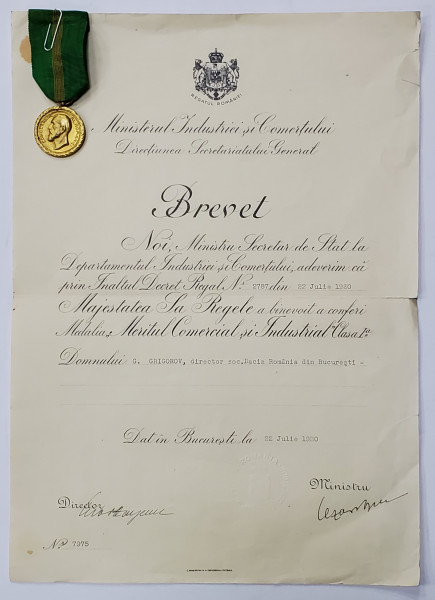 REGATUL ROMÂNIEI
Ministerul Industriei și Comerțului
Direcțiunea Secretariatului General
Brevet
Noi, Ministru Secretar de Stat la
Departamentul Industriei și Comerțului, adeverim că
prin Înaltul Decret Regal Nº 2787 din 22 Julie 1930
Majestatea Sa Regele a binevoit a conferi
Medalia „Meritul Comercial și Industrial” Clasa Iª
Domnului G. GRIGOROV, director soc.Dacia România din București -
Dat în București la 22 Julie 1930
Ministru
Director
Nº 7975